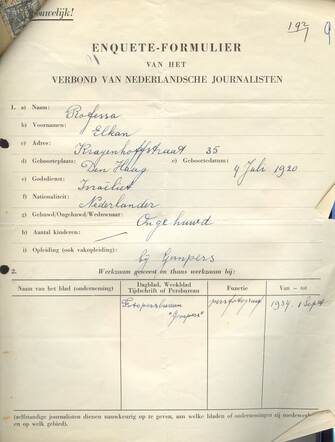 ouwelijk!
193
9
ENQUETE-FORMULIER
VAN HET
VERBOND VAN NEDERLANDSCHE JOURNALISTEN
1. a) Naam: Roffessa
b) Voornamen: Elkan
c) Adres: Krayenhoffstraat 35
d) Geboorteplaats: Den Haag e) Geboortedatum: 4 Juli 1920
e) Godsdienst: Israëliet
f) Nationaliteit: Nederlander
g) Gehuwd/Ongehuwd/Weduwnaar: Ongehuwd
h) Aantal kinderen:
i) Opleiding (ook vakopleiding): bij Gompers
2. Werkzaam geweest en thans werkzaam bij:
Naam van het blad (onderneming) Dagblad, Weekblad Tijdschrift of Persbureau Functie Van — tot
Fotopersbureau "Gompers" persfotograaf 1937. 1 Sept
(zelfstandige journalisten dienen nauwkeurig op te geven, aan welke bladen of ondernemingen zij medewerk
en op welk gebied).